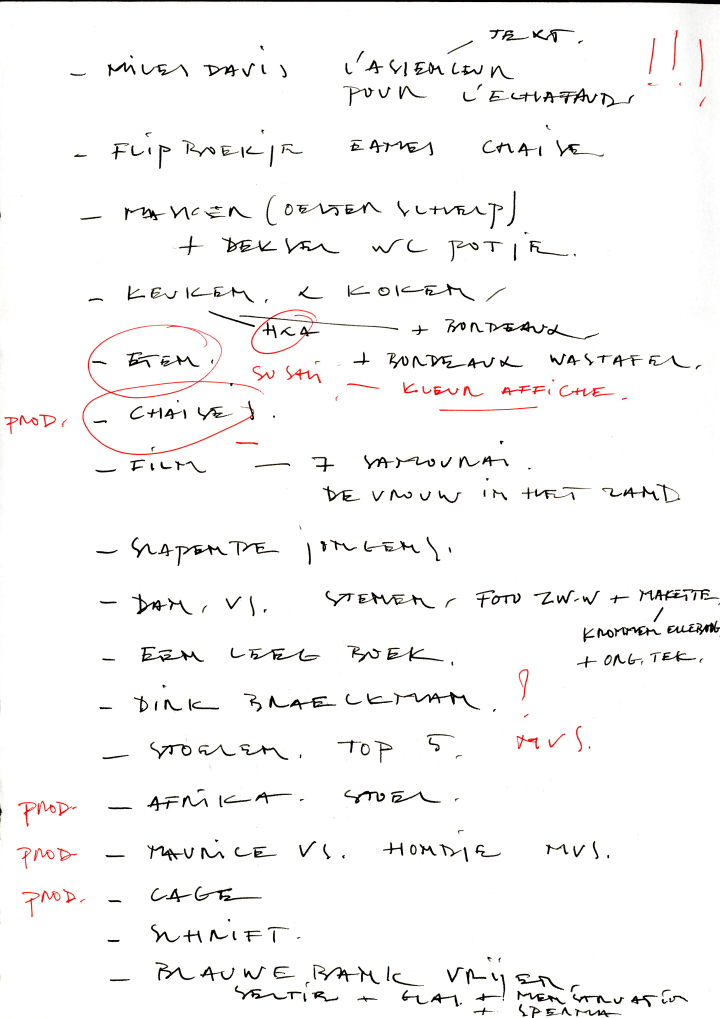 TEKST.
- MILES DAVIS L'ASCENSEUR !!!
POUR L'ECHAFAUD.
- FLIPBOEKJE EAMES CHAISE
- MANGER (OESTER SCHELP)
+ DEKSEL WC POTJE.
- KEUKEN. & KOKEN
HKA + BORDEAUX
- ETEN. + BORDEAUX WASTAFEL.
SUSAN - KLEUR AFFICHE.
PROD. - CHAISES.
- FILM - 7 SAMOURAI.
DE VROUW IN HET ZAND
- SLAPENDE JONGENS.
- DAM, VS. STENEN, FOTO ZW-W + MAKETTE
KROMMEN ELLEBOOG
- EEN LEEG BOEK. + ORG. TEK.
- DIRK BRAECKMAN. ?
- STOELEN. TOP 5. MVS.
PROD. - AFRIKA. STOEL.
PROD - MAURICE VS. HONDJE MVS.
PROD. - CAGE
- SCHRIFT.
- BLAUWE BANK VRIJEN.
+ GLAS + MENSTRUATIE
+ SPERMA